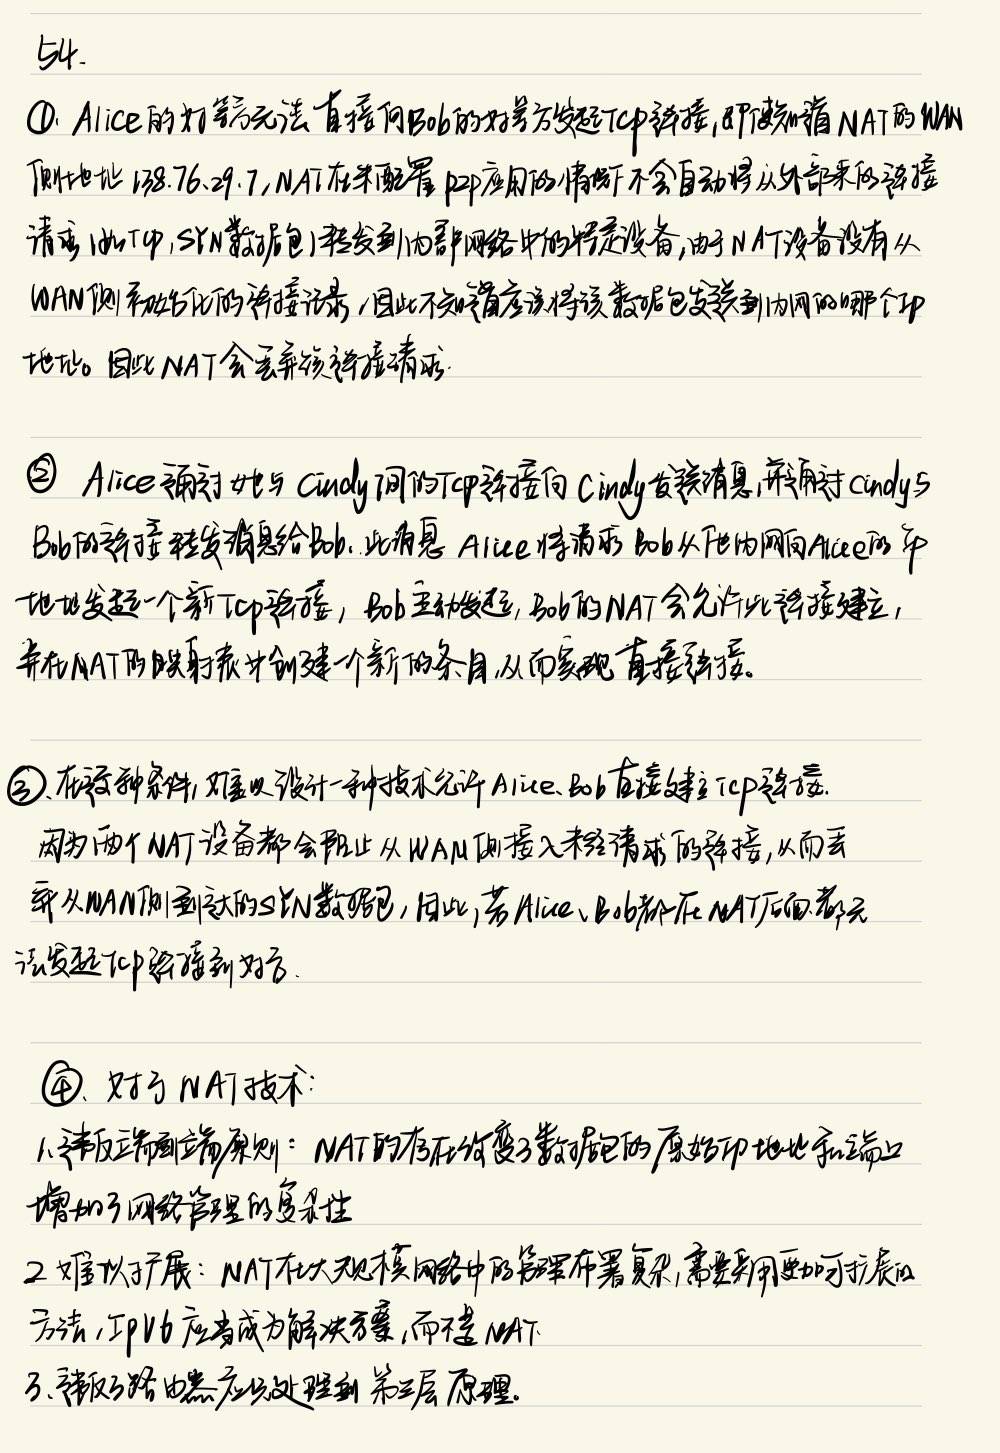 54.
①. Alice的对等方无法直接向Bob的对等方发起TCP连接,即使知道NAT的WAN
侧地址138.76.29.7,NAT在未配置P2P应用的情况下不会自动将从外部来的连接
请求(如TCP,SYN数据包)转发到内部网络中的特定设备,由于NAT设备没有从
WAN侧初始化的连接记录,因此不知道应该将该数据包发送到内网的哪个IP
地址。因此NAT会丢弃该连接请求.
② Alice通过她与Cindy间的TCP连接向Cindy发送消息,并通过Cindy与
Bob的连接转发消息给Bob.此消息Alice将请求Bob从他内网向Alice的IP
地址发起一个新TCP连接,Bob主动发起,Bob的NAT会允许此连接建立,
并在NAT的映射表中创建一个新的条目,从而实现直接连接。
③.在这种条件,难以设计一种技术允许Alice、Bob直接建立TCP连接.
因为两个NAT设备都会阻止从WAN侧接入未经请求的连接,从而丢
弃从WAN侧到达的SYN数据包,因此,若Alice、Bob都在NAT后面都无
法发起TCP连接到对方.
④、对于NAT技术:
1.违反端到端原则:NAT的存在改变了数据包的原始IP地址和端口
增加了网络管理的复杂性
2 难以扩展:NAT在大规模网络中的管理布署复杂,需要采用更加可扩展的
方法,IPV6应当成为解决方案,而不是NAT.
3.违反了路由器应仅处理到第三层原理。